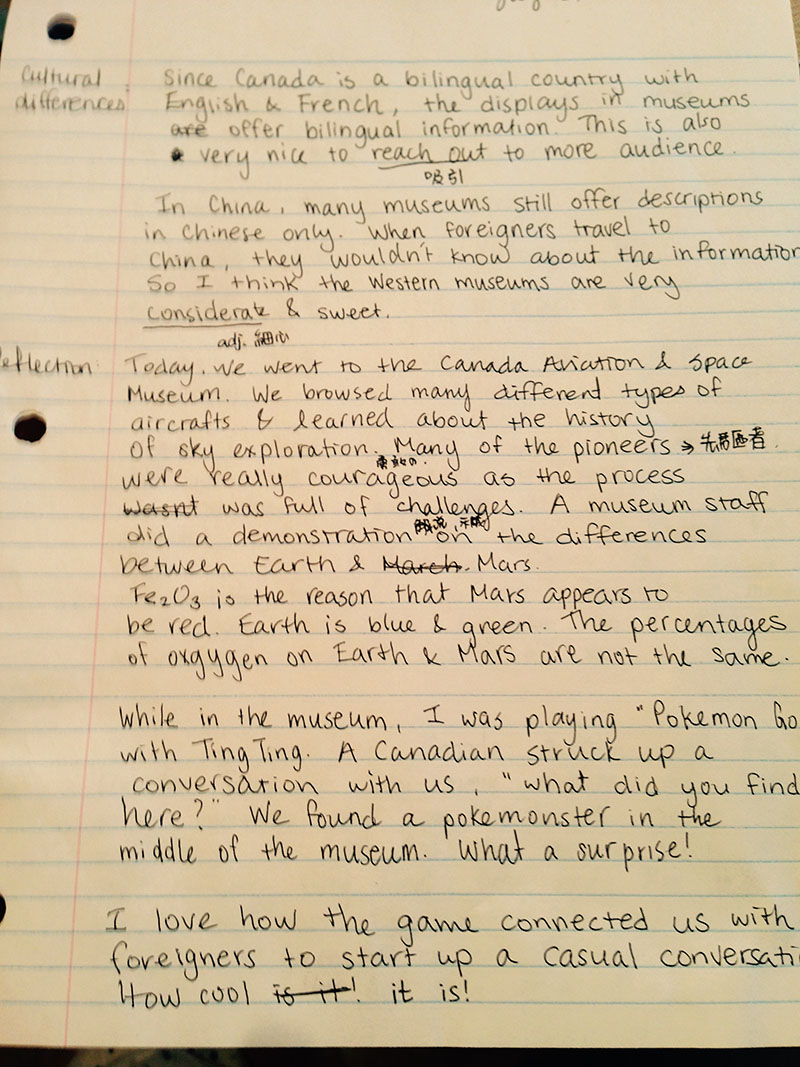 Cultural : Since Canada is a bilingual country with
differences English & French, the displays in museums
are offer bilingual information. This is also
very nice to reach out to more audience.
吸引
In China, many museums still offer descriptions
in Chinese only. When foreigners travel to
China, they wouldn't know about the information
So I think the Western museums are very
considerate & sweet.
adj. 細心
eflection: Today, we went to the Canada Aviation & Space
Museum. We browsed many different types of
aircrafts & learned about the history
of sky exploration. Many of the pioneers → 先驅者.
勇敢的.
were really courageous as the process
wasnt was full of challenges. A museum staff
示範
did a demonstration on the differences
between Earth & March. Mars.
Fe₂O₃ is the reason that Mars appears to
be red. Earth is blue & green. The percentages
of oxgygen on Earth & Mars are not the same.
While in the museum, I was playing "Pokemon Go
with TingTing. A Canadian struck up a
conversation with us, "what did you find
here?" We found a pokemonster in the
middle of the museum. What a surprise!
I love how the game connected us with
foreigners to start up a casual conversati
How cool is it! it is!